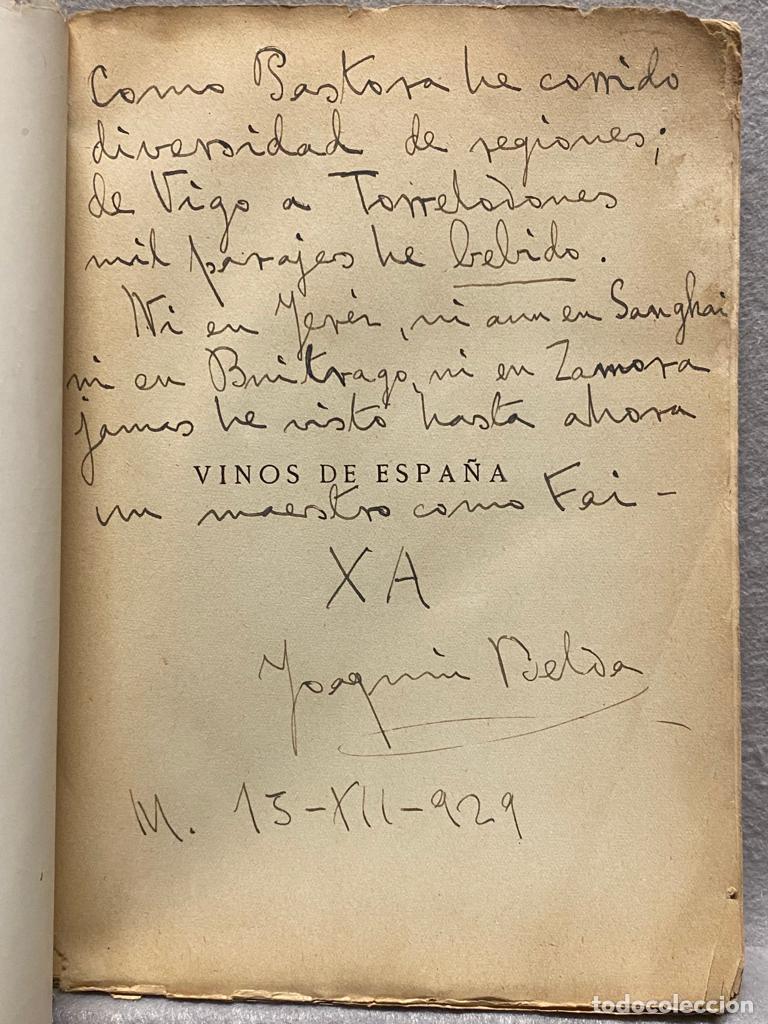 Como Pastora he corrido
diversidad de regiones;
de Vigo a Torrelodones
mil parajes he bebido.
Ni en Jeréz, ni aun en Sanghai
ni en Buitrago, ni en Zamora
jamas he visto hasta ahora
VINOS DE ESPAÑA
un maestro como Fai-
XA
Joaquin Belda
M. 13-XII-929
todocoleccion